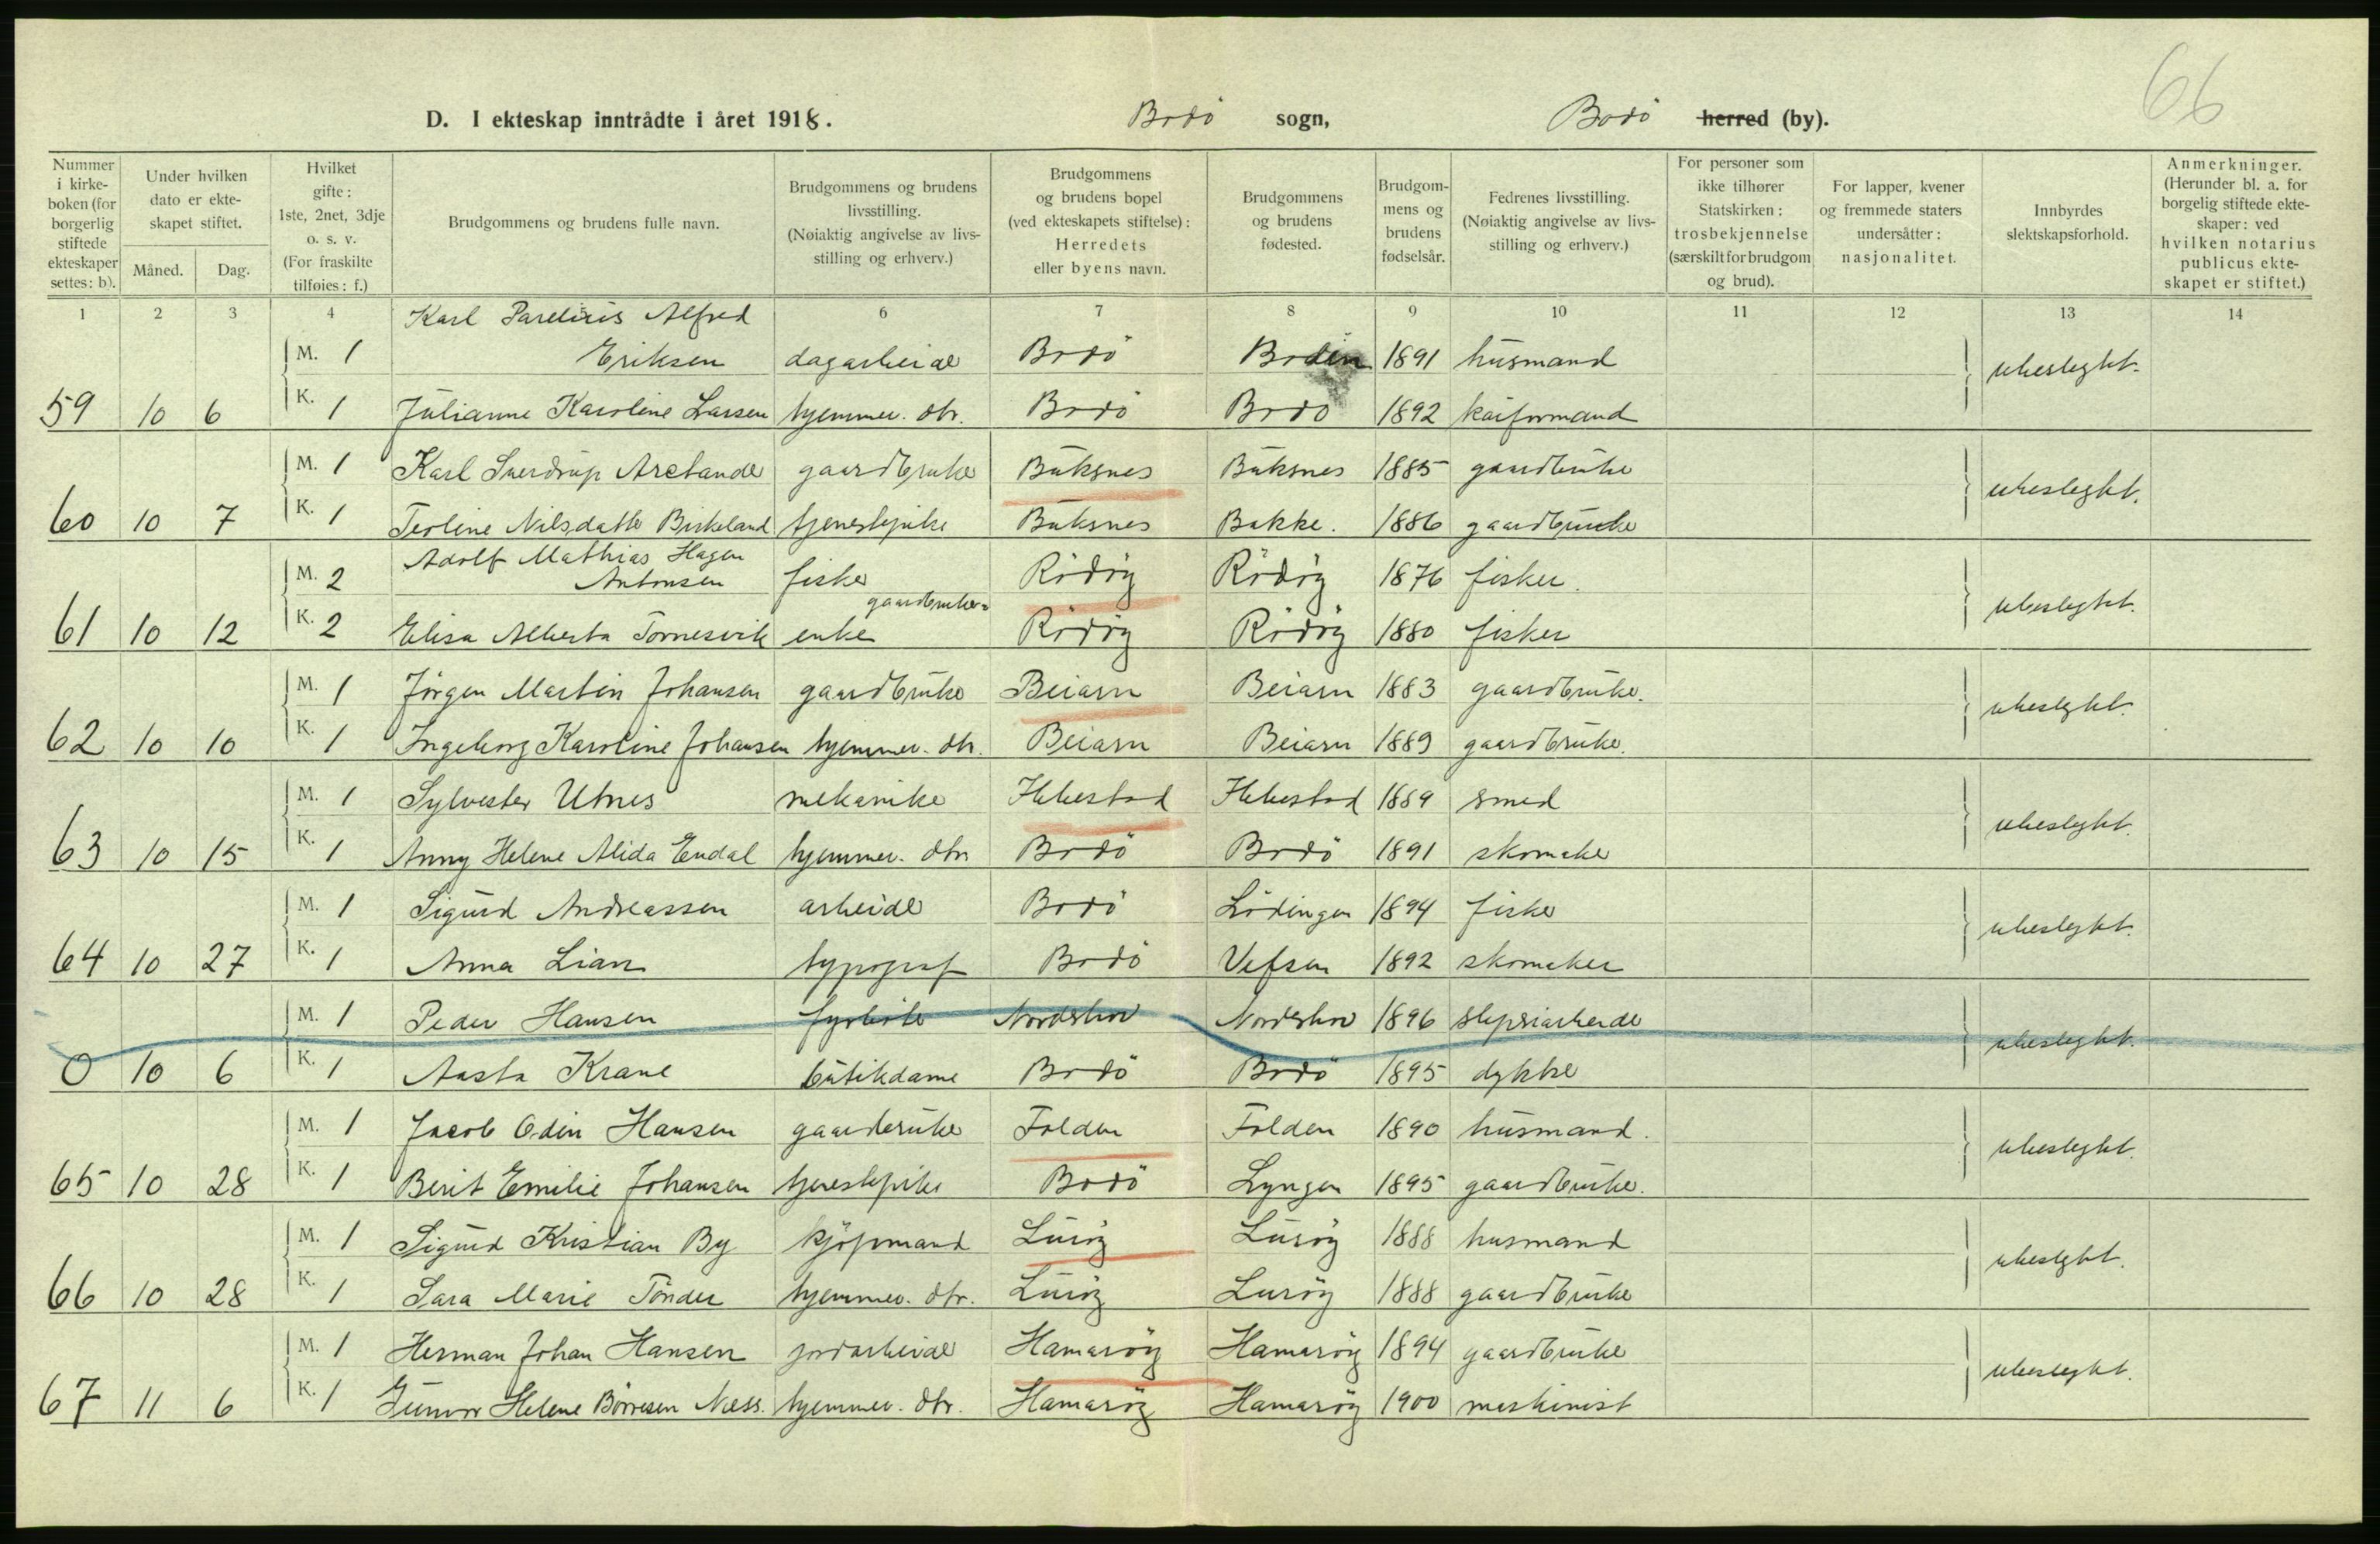 66
D. I ekteskap inntrådte i året 1918. Bodö sogn, Bodö herred (by).
Nummer i kirkeboken (for borgerlig stiftede ekteskaper settes: b).
Under hvilken dato er ekteskapet stiftet.
Måned. Dag.
Hvilket gifte: 1ste, 2net, 3dje o. s. v. (For fraskilte tilføies: f.)
Brudgommens og brudens fulle navn.
Brudgommens og brudens livsstilling. (Nøiaktig angivelse av livsstilling og erhverv.)
Brudgommens og brudens bopel (ved ekteskapets stiftelse): Herredets eller byens navn.
Brudgommens og brudens fødested.
Brudgommens og brudens fødselsår.
Fedrenes livsstilling. (Nøiaktig angivelse av livsstilling og erhverv.)
For personer som ikke tilhører Statskirken: trosbekjennelse (særskilt for brudgom og brud).
For lapper, kvener og fremmede staters undersåtter: nasjonalitet.
Innbyrdes slektskapsforhold.
Anmerkninger. (Herunder bl. a. for borgelig stiftede ekteskaper: ved hvilken notarius publicus ekteskapet er stiftet.)
1 2 3 4 6 7 8 9 10 11 12 13 14
Karl Parelius Alfred
M. 1 Eriksen dagarbeide Bodö Bodin 1891 husmand ubeslegtet.
59 10 6 K. 1 Julianne Karoline Larsen hjemmev. dtr. Bodö Bodö 1892 kaiformand
M. 1 Karl Sverdrup Arctander gaardbruker Buksnes Buksnes 1885 gaardbruker ubeslegtet.
60 10 7 K. 1 Teoline Nilsdatter Birkeland tjenestepike Buksnes Bakke. 1886 gaardbruker
Adolf Mathias Hagen
M. 2 Antonsen fisker Rödöy Rödöy 1876 fisker. ubeslegtet.
gaardbruker-
61 10 12 K. 2 Elisa Alberta Tornesvik enke Rödöy Rödöy 1880 fisker
M. 1 Jörgen Martin Johansen gaardbruker Beiarn Beiarn 1883 gaardbruker. ubeslegtet.
62 10 10 K. 1 Ingeborg Karoline Johansen hjemmev. dtr. Beiarn Beiarn 1889 gaardbruker.
M. 1 Sylvester Utnes mekaniker Ibbestad Ibbestad 1889 smed ubeslegtet.
63 10 15 K. 1 Anny Helene Alida Endal hjemmev. dtr. Bodö Bodö 1891 skomaker
M. 1 Sigurd Andreassen arbeider Bodö Lödingen 1894 fisker ubeslegtet.
64 10 27 K. 1 Anna Lian typograf Bodö Vefsen 1892 skomaker
M. 1 Peder Hansen fyrböter Norderhov Norderhov 1896 sliperiarbeider ubeslegtet.
0 10 6 K. 1 Aasta Krane butikdame Bodö Bodö 1895 dykker
M. 1 Jacob Odin Hansen gaardbruker Folden Folden 1890 husmand. ubeslegtet.
65 10 28 K. 1 Berit Emilie Johansen tjenestepike Bodö Lyngen 1895 gaardbruker.
M. 1 Sigurd Kristian By kjöpmand Luröy Luröy 1888 husmand ubeslegtet.
66 10 28 K. 1 Sara Marie Tönder hjemmev. dtr. Luröy Luröy 1888 gaardbruker
M. 1 Herman Johan Hansen jordarbeider Hamaröy Hamaröy 1894 gaardbruker ubeslegtet.
67 11 6 K. 1 Gunvor Helene Börresen Næss. hjemmev. dtr. Hamaröy Hamaröy 1900 maskinist